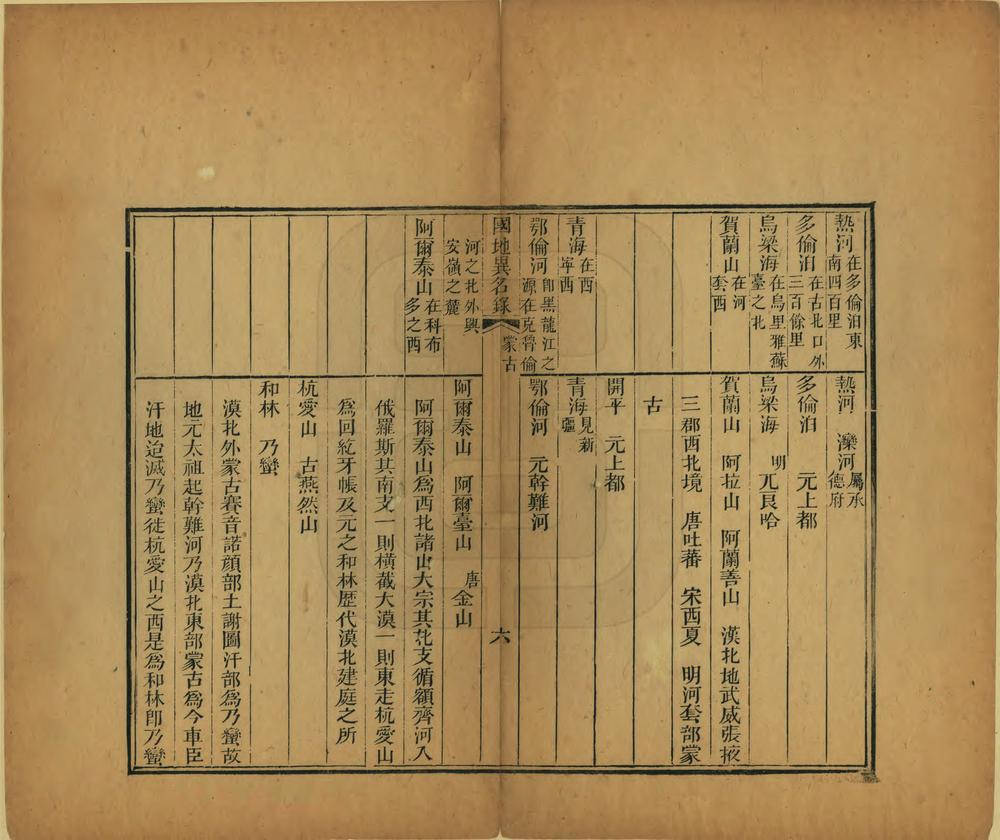 熱河在多倫泊東南四百里
熱河　灤河屬承德府
多倫泊在古北口外三百餘里
多倫泊　元上都
烏梁海在烏里雅蘇臺之北
烏梁海　明兀良哈
賀蘭山在河套西
賀蘭山　阿拉山　阿蘭善山　漢北地武威張掖
三郡西北境　唐吐蕃　宋西夏　明河套部蒙
古
開平　元上都
青海在西寧西
青海見新疆
鄂倫河卽黑龍江之源在克魯倫
鄂倫河　元斡難河
國地異名錄　蒙古　六
河之北外興安嶺之麓
阿爾泰山　阿爾臺山　唐金山
阿爾泰山在科布多之西
阿爾泰山爲西北諸山大宗其北支循額齊河入
俄羅斯其南支一則橫截大漠一則東走杭愛山
爲回紇牙帳及元之和林歷代漠北建庭之所
杭愛山　古燕然山
和林　乃蠻
漠北外蒙古賽音諾顏部土謝圖汗部爲乃蠻故
地元太祖起斡難河乃漠北東部蒙古爲今車臣
汗地迨滅乃蠻徙杭愛山之西是爲和林卽乃蠻